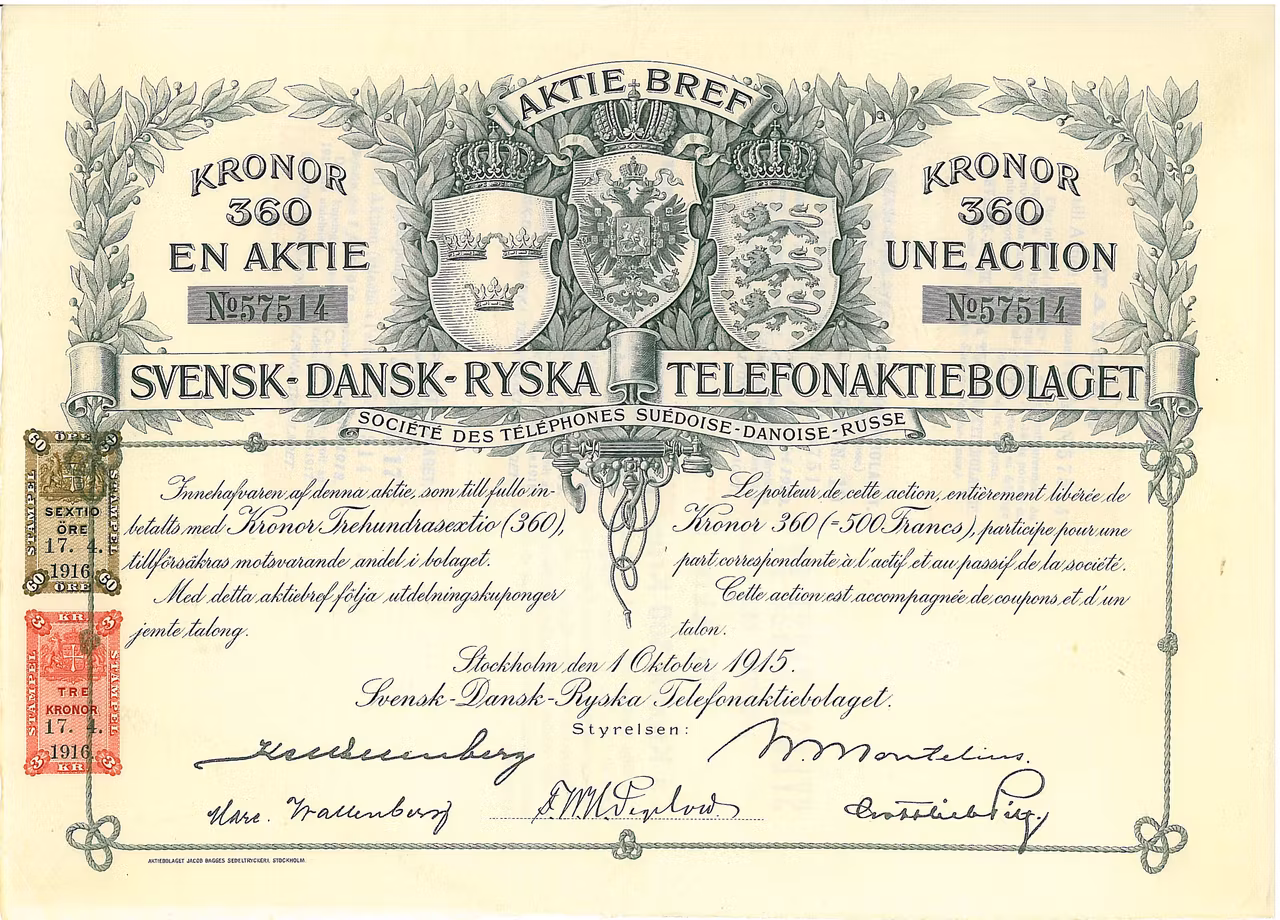 AKTIE BREF
KRONOR
360
EN AKTIE
No 57514
KRONOR
360
UNE ACTION
No 57514
SVENSK-DANSK-RYSKA TELEFONAKTIEBOLAGET
SOCIÉTÉ DES TÉLÉPHONES SUÉDOISE-DANOISE-RUSSE
Innehafvaren af denna aktie, som till fullo in-
betalts med Kronor Trehundrasextio (360),
tillförsäkras motsvarande andel i bolaget.
Med detta aktiebref följa utdelningskuponger
jemte talong.
Le porteur de cette action, entièrement libérée de
Kronor 360 (=500 Francs), participe pour une
part correspondante à l'actif et au passif de la société.
Cette action est accompagnée de coupons et d'un
talon.
Stockholm den 1 Oktober 1915.
Svensk-Dansk-Ryska Telefonaktiebolaget.
Styrelsen:
W. Montelius.
Marc. Wallenberg
60 ÖRE
STÄMPEL
STÄMPEL
SEXTIO
ÖRE
17. 4.
1916
60 ÖRE 60
3 KR 3
STÄMPEL
STÄMPEL
TRE
KRONOR
17. 4.
1916
3 KR 3
AKTIEBOLAGET JACOB BAGGES SEDELTRYCKERI, STOCKHOLM.